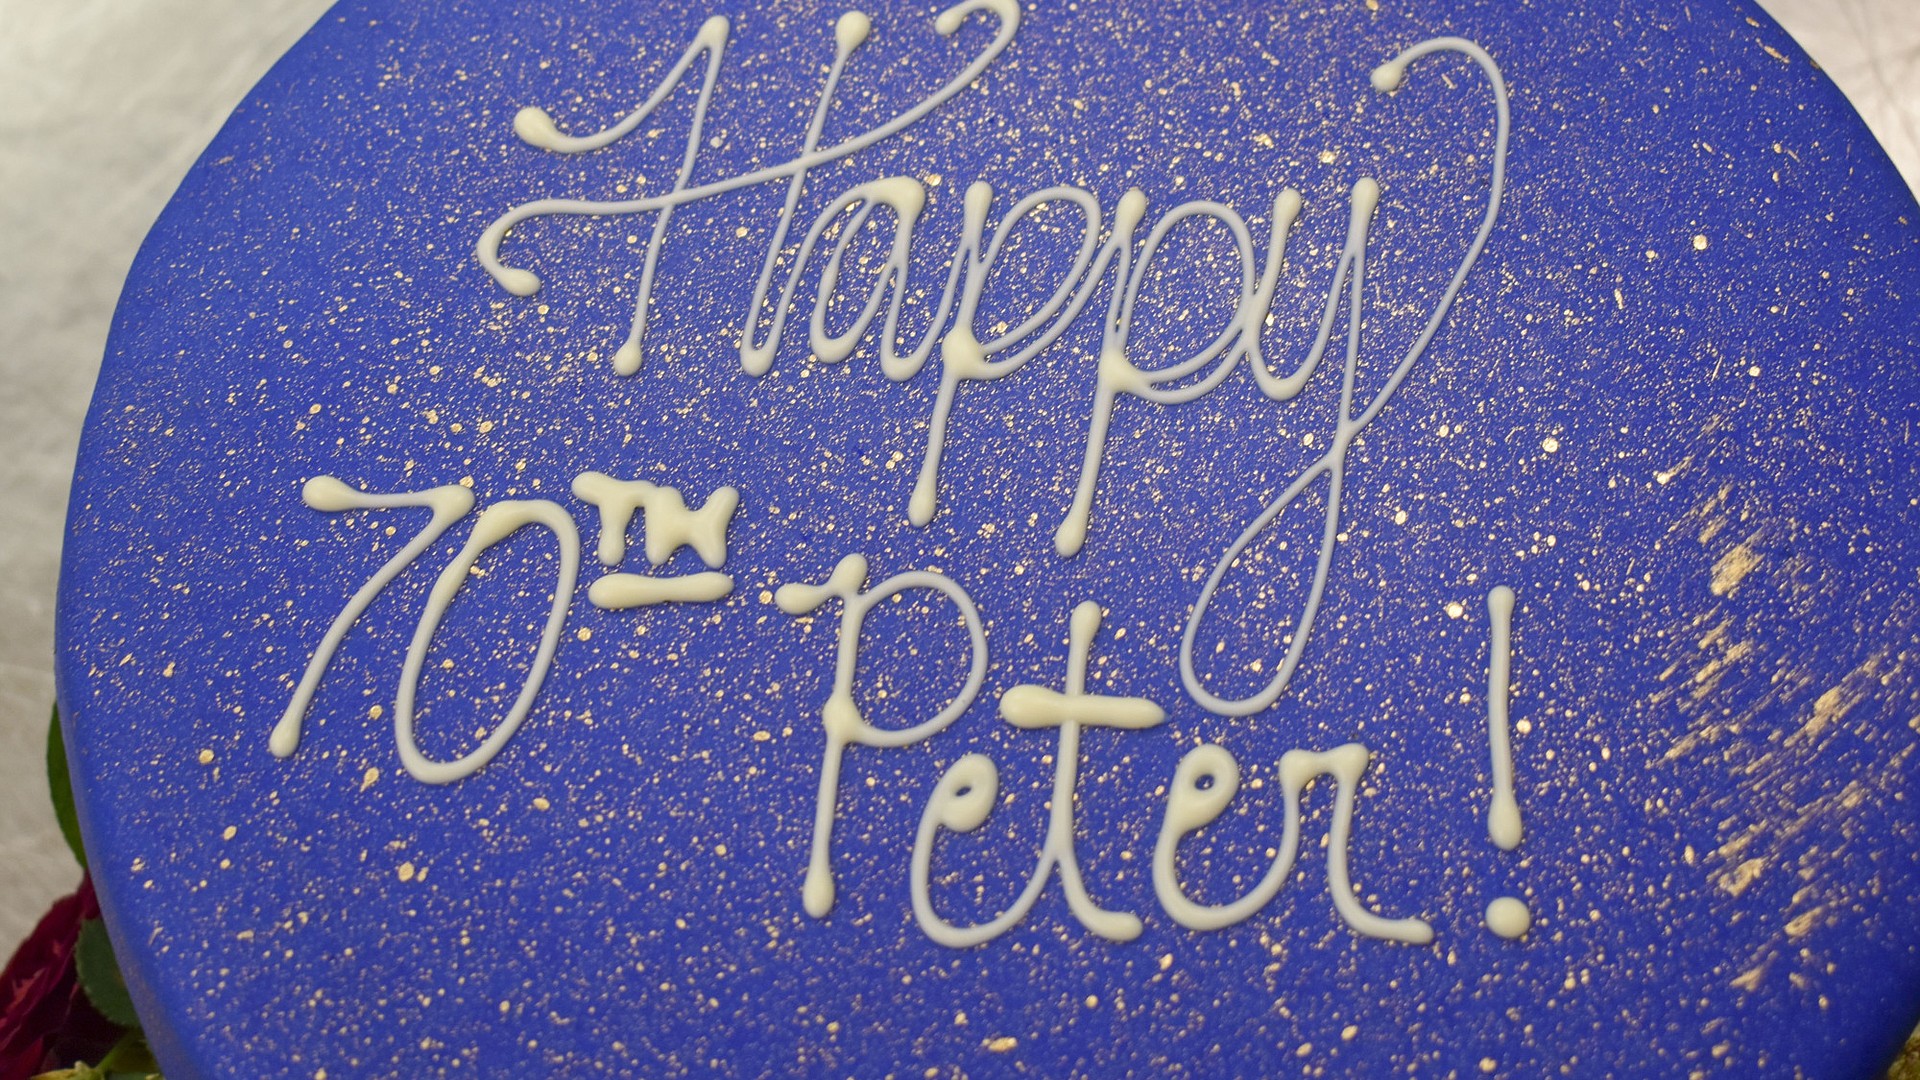 Happy
70TH Peter!